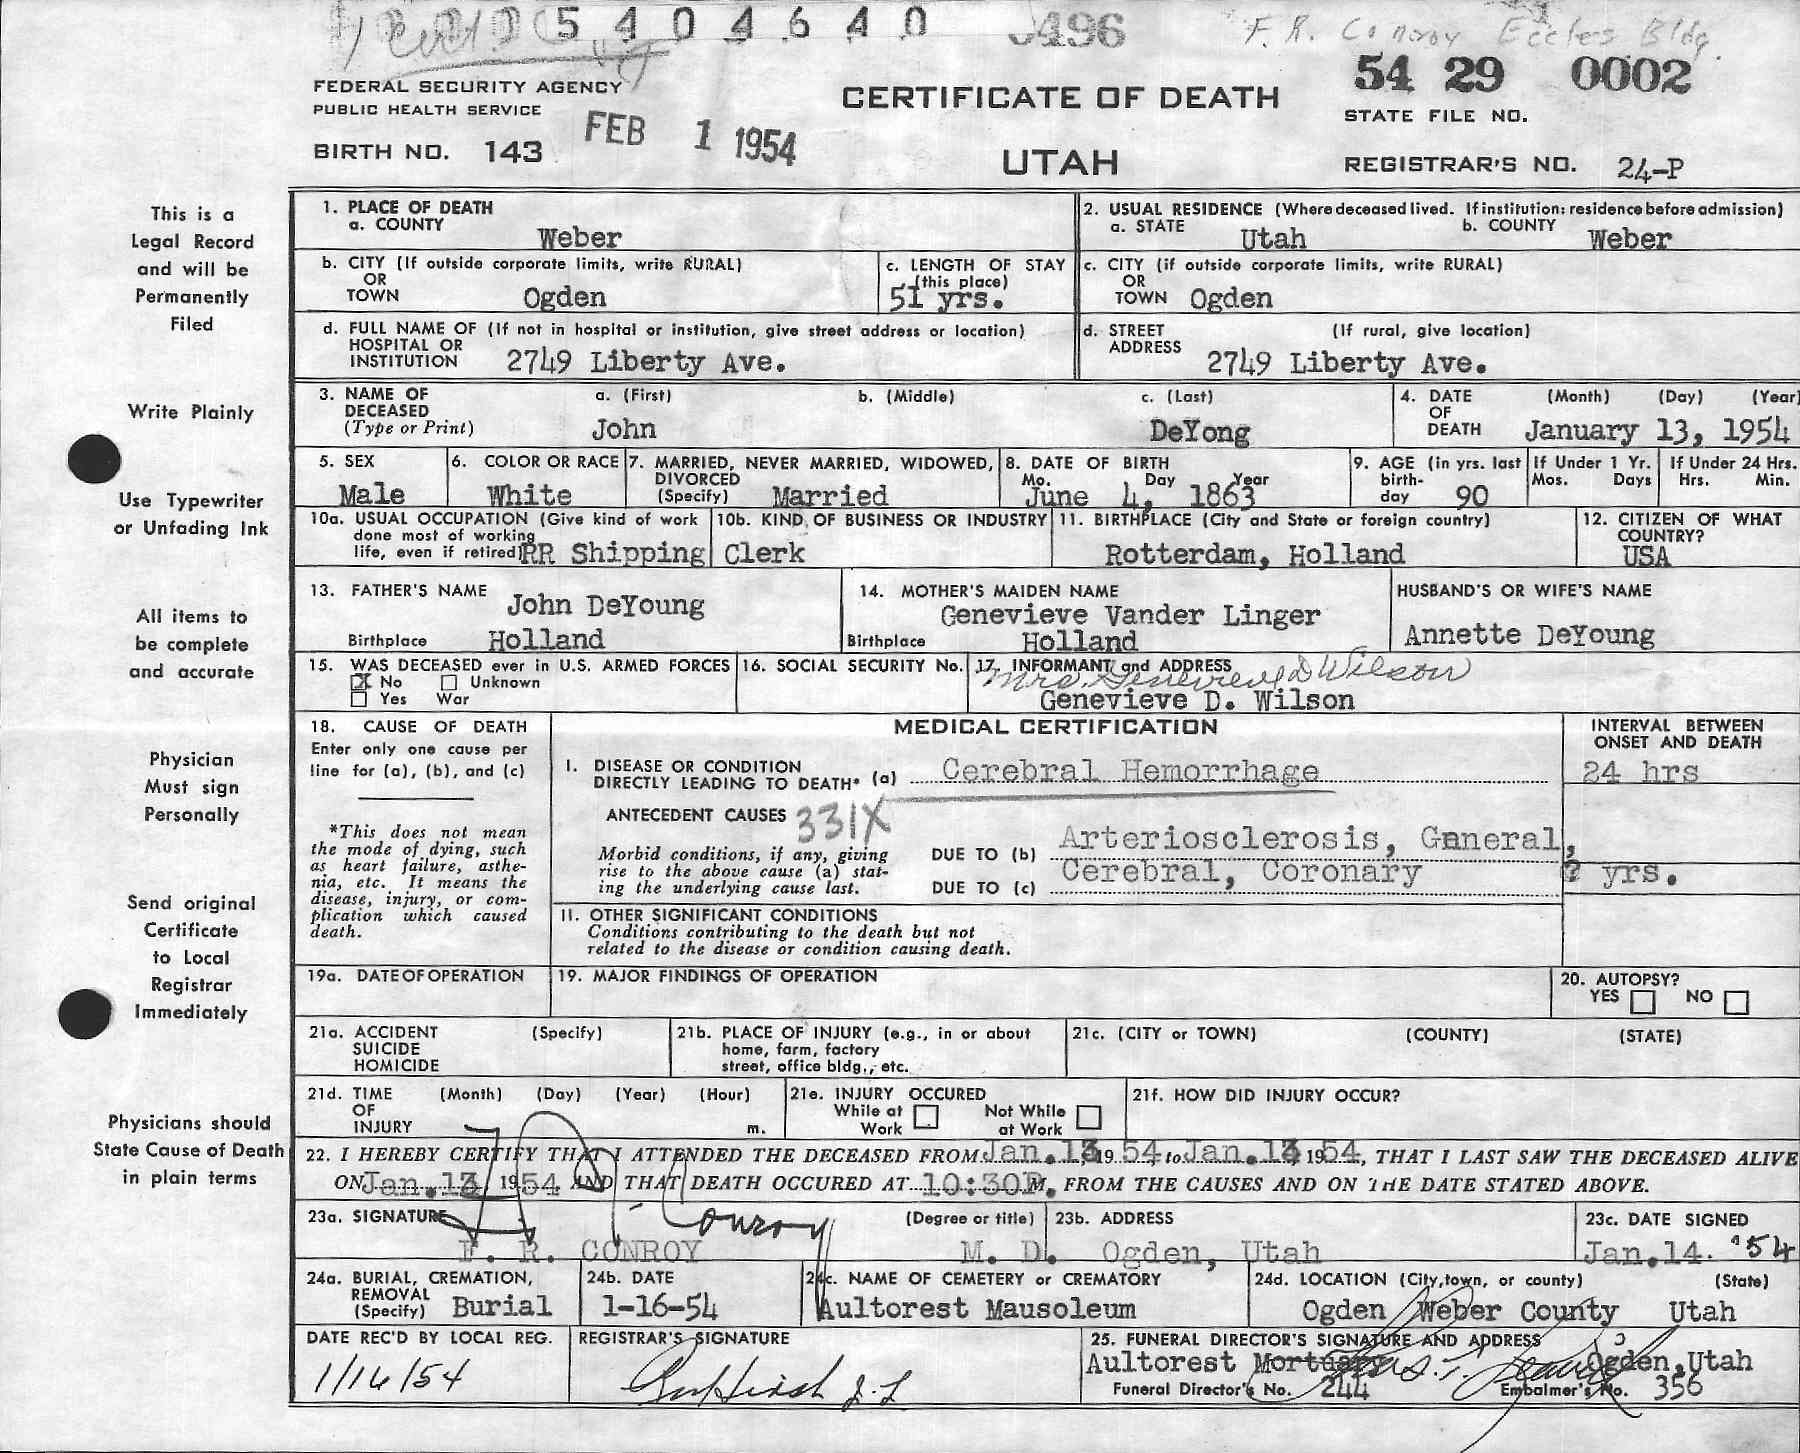 5 4 0 4 6 4 0 496 F. R. Conroy Eccles Bldg.
FEDERAL SECURITY AGENCY
PUBLIC HEALTH SERVICE
CERTIFICATE OF DEATH
54 29 0002
STATE FILE NO.
BIRTH NO. 143 FEB 1 1954
UTAH
REGISTRAR'S NO. 24-P
This is a
Legal Record
and will be
Permanently
Filed
Write Plainly
Use Typewriter
or Unfading Ink
All items to
be complete
and accurate
Physician
Must sign
Personally
Send original
Certificate
to Local
Registrar
Immediately
Physicians should
State Cause of Death
in plain terms
1. PLACE OF DEATH
a. COUNTY Weber
2. USUAL RESIDENCE (Where deceased lived. If institution: residence before admission)
a. STATE Utah b. COUNTY Weber
b. CITY (If outside corporate limits, write RURAL)
OR
TOWN Ogden
c. LENGTH OF STAY
(this place)
51 yrs.
c. CITY (if outside corporate limits, write RURAL)
OR
TOWN Ogden
d. FULL NAME OF (If not in hospital or institution, give street address or location)
HOSPITAL OR
INSTITUTION 2749 Liberty Ave.
d. STREET (If rural, give location)
ADDRESS 2749 Liberty Ave.
3. NAME OF a. (First) b. (Middle) c. (Last)
DECEASED
(Type or Print) John DeYong
4. DATE (Month) (Day) (Year)
OF
DEATH January 13, 1954
5. SEX
Male
6. COLOR OR RACE
White
7. MARRIED, NEVER MARRIED, WIDOWED,
DIVORCED
(Specify) Married
8. DATE OF BIRTH
Mo. Day Year
June 4, 1863
9. AGE (in yrs. last
birth-
day 90
If Under 1 Yr.
Mos. Days
If Under 24 Hrs.
Hrs. Min.
10a. USUAL OCCUPATION (Give kind of work
done most of working
life, even if retired) RR Shipping
10b. KIND OF BUSINESS OR INDUSTRY
Clerk
11. BIRTHPLACE (City and State or foreign country)
Rotterdam, Holland
12. CITIZEN OF WHAT
COUNTRY?
USA
13. FATHER'S NAME John DeYoung
Birthplace Holland
14. MOTHER'S MAIDEN NAME
Genevieve Vander Linger
Birthplace Holland
HUSBAND'S OR WIFE'S NAME
Annette DeYoung
15. WAS DECEASED ever in U.S. ARMED FORCES
X No Unknown
Yes War
16. SOCIAL SECURITY No.
17. INFORMANT and ADDRESS
Mrs. Genevieve D Wilson
Genevieve D. Wilson
18. CAUSE OF DEATH
Enter only one cause per
line for (a), (b), and (c)
*This does not mean
the mode of dying, such
as heart failure, asthe-
nia, etc. It means the
disease, injury, or com-
plication which caused
death.
MEDICAL CERTIFICATION
INTERVAL BETWEEN
ONSET AND DEATH
I. DISEASE OR CONDITION
DIRECTLY LEADING TO DEATH* (a) Cerebral Hemorrhage 24 hrs
ANTECEDENT CAUSES 331X
Morbid conditions, if any, giving
rise to the above cause (a) stat-
ing the underlying cause last.
DUE TO (b) Arteriosclerosis, General,
DUE TO (c) Cerebral, Coronary ? yrs.
II. OTHER SIGNIFICANT CONDITIONS
Conditions contributing to the death but not
related to the disease or condition causing death.
19a. DATE OF OPERATION
19. MAJOR FINDINGS OF OPERATION
20. AUTOPSY?
YES NO
21a. ACCIDENT (Specify)
SUICIDE
HOMICIDE
21b. PLACE OF INJURY (e.g., in or about
home, farm, factory
street, office bldg., etc.
21c. (CITY or TOWN) (COUNTY) (STATE)
21d. TIME (Month) (Day) (Year) (Hour)
OF
INJURY m.
21e. INJURY OCCURED
While at Work Not While at Work
21f. HOW DID INJURY OCCUR?
22. I HEREBY CERTIFY THAT I ATTENDED THE DECEASED FROM Jan. 13 1954, to Jan. 13, 1954, THAT I LAST SAW THE DECEASED ALIVE
ON Jan. 13, 1954 AND THAT DEATH OCCURED AT 10:30P.M. FROM THE CAUSES AND ON THE DATE STATED ABOVE.
23a. SIGNATURE F. R. Conroy (Degree or title)
F. R. CONROY M. D.
23b. ADDRESS
Ogden, Utah
23c. DATE SIGNED
Jan.14. '54
24a. BURIAL, CREMATION,
REMOVAL
(Specify) Burial
24b. DATE
1-16-54
24c. NAME OF CEMETERY or CREMATORY
Aultorest Mausoleum
24d. LOCATION (City, town, or county) (State)
Ogden Weber County Utah
DATE REC'D BY LOCAL REG.
1/16/54
REGISTRAR'S SIGNATURE
25. FUNERAL DIRECTOR'S SIGNATURE AND ADDRESS
Aultorest Mortuary Ogden, Utah
Funeral Director's No. 244 Embalmer's No. 356